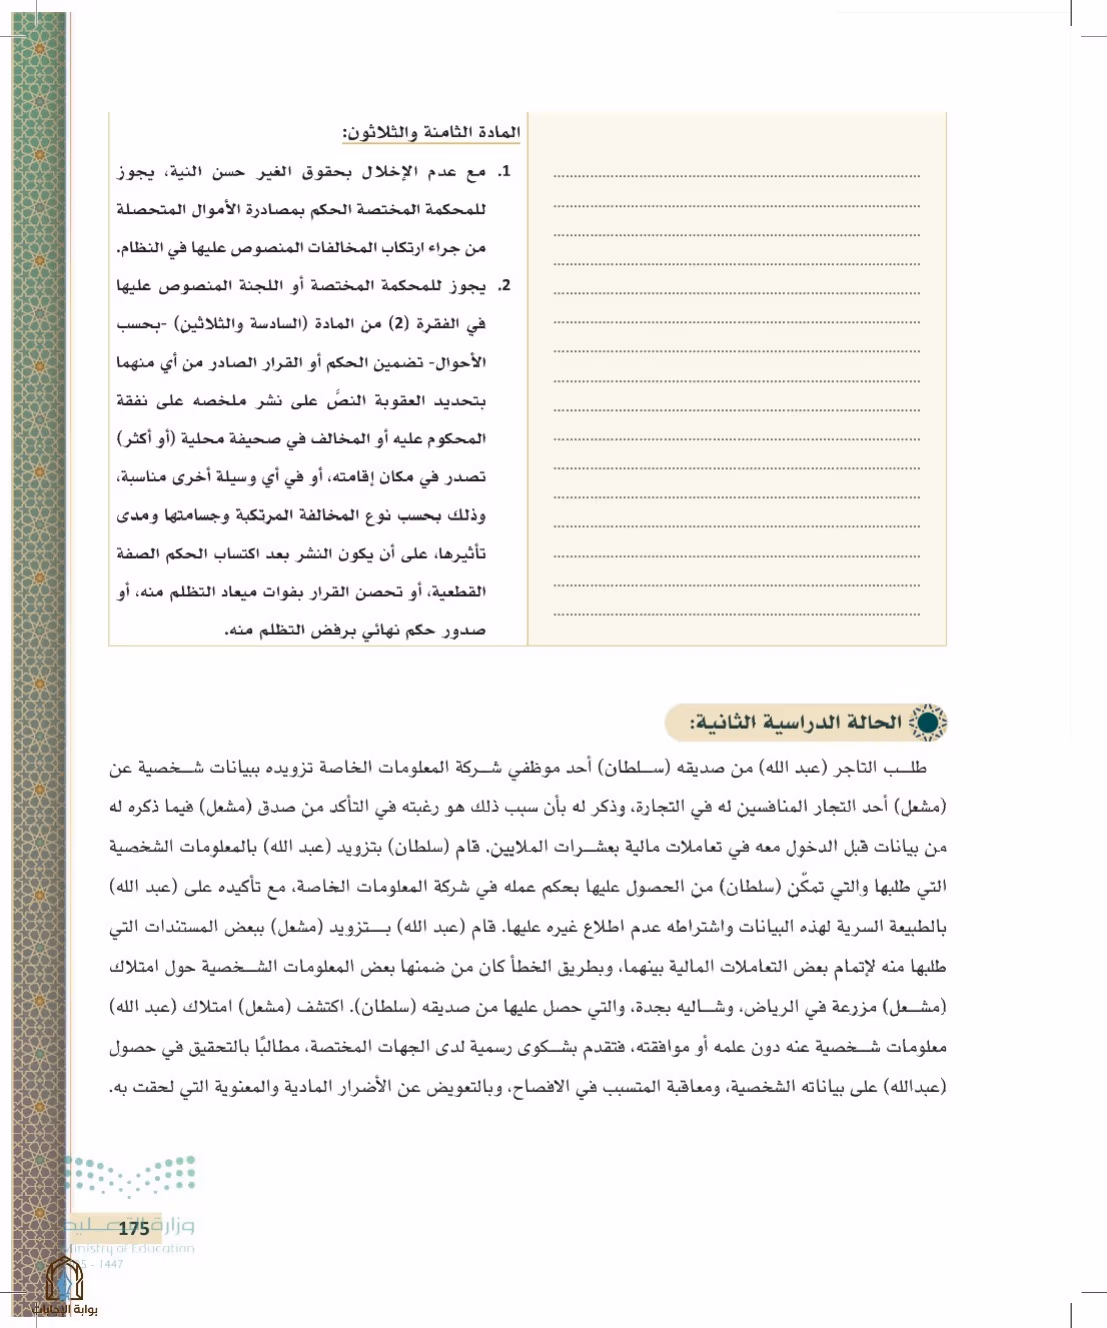 المادة الثامنة والثلاثون:
1. مع عدم الإخلال بحقوق الغير حسن النية، يجوز
للمحكمة المختصة الحكم بمصادرة الأموال المتحصلة
من جراء ارتكاب المخالفات المنصوص عليها في النظام.
2. يجوز للمحكمة المختصة أو اللجنة المنصوص عليها
في الفقرة (2) من المادة (السادسة والثلاثين) -بحسب
الأحوال- تضمين الحكم أو القرار الصادر من أي منهما
بتحديد العقوبة النصَّ على نشر ملخصه على نفقة
المحكوم عليه أو المخالف في صحيفة محلية (أو أكثر)
تصدر في مكان إقامته، أو في أي وسيلة أخرى مناسبة،
وذلك بحسب نوع المخالفة المرتكبة وجسامتها ومدى
تأثيرها، على أن يكون النشر بعد اكتساب الحكم الصفة
القطعية، أو تحصن القرار بفوات ميعاد التظلم منه، أو
صدور حكم نهائي برفض التظلم منه.
الحالة الدراسية الثانية:
طلب التاجر (عبد الله) من صديقه (سلطان) أحد موظفي شركة المعلومات الخاصة تزويده ببيانات شخصية عن
(مشعل) أحد التجار المنافسين له في التجارة، وذكر له بأن سبب ذلك هو رغبته في التأكد من صدق (مشعل) فيما ذكره له
من بيانات قبل الدخول معه في تعاملات مالية بعشرات الملايين. قام (سلطان) بتزويد (عبد الله) بالمعلومات الشخصية
التي طلبها والتي تمكّن (سلطان) من الحصول عليها بحكم عمله في شركة المعلومات الخاصة، مع تأكيده على (عبد الله)
بالطبيعة السرية لهذه البيانات واشتراطه عدم اطلاع غيره عليها. قام (عبد الله) بتزويد (مشعل) ببعض المستندات التي
طلبها منه لإتمام بعض التعاملات المالية بينهما، وبطريق الخطأ كان من ضمنها بعض المعلومات الشخصية حول امتلاك
(مشعل) مزرعة في الرياض، وشاليه بجدة، والتي حصل عليها من صديقه (سلطان). اكتشف (مشعل) امتلاك (عبد الله)
معلومات شخصية عنه دون علمه أو موافقته، فتقدم بشكوى رسمية لدى الجهات المختصة، مطالبًا بالتحقيق في حصول
(عبدالله) على بياناته الشخصية، ومعاقبة المتسبب في الافصاح، وبالتعويض عن الأضرار المادية والمعنوية التي لحقت به.
وزارة التعليم
175
Ministry of Education
- 1447